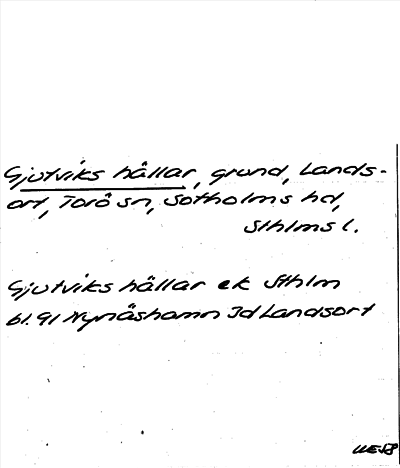 Gjutviks hällar, grund, Lands-
ort, Torö sn, Sotholms hd,
Sthlms l.
Gjutviks hällar ek Sthlm
bl. 91 Nynäshamn Id Landsort